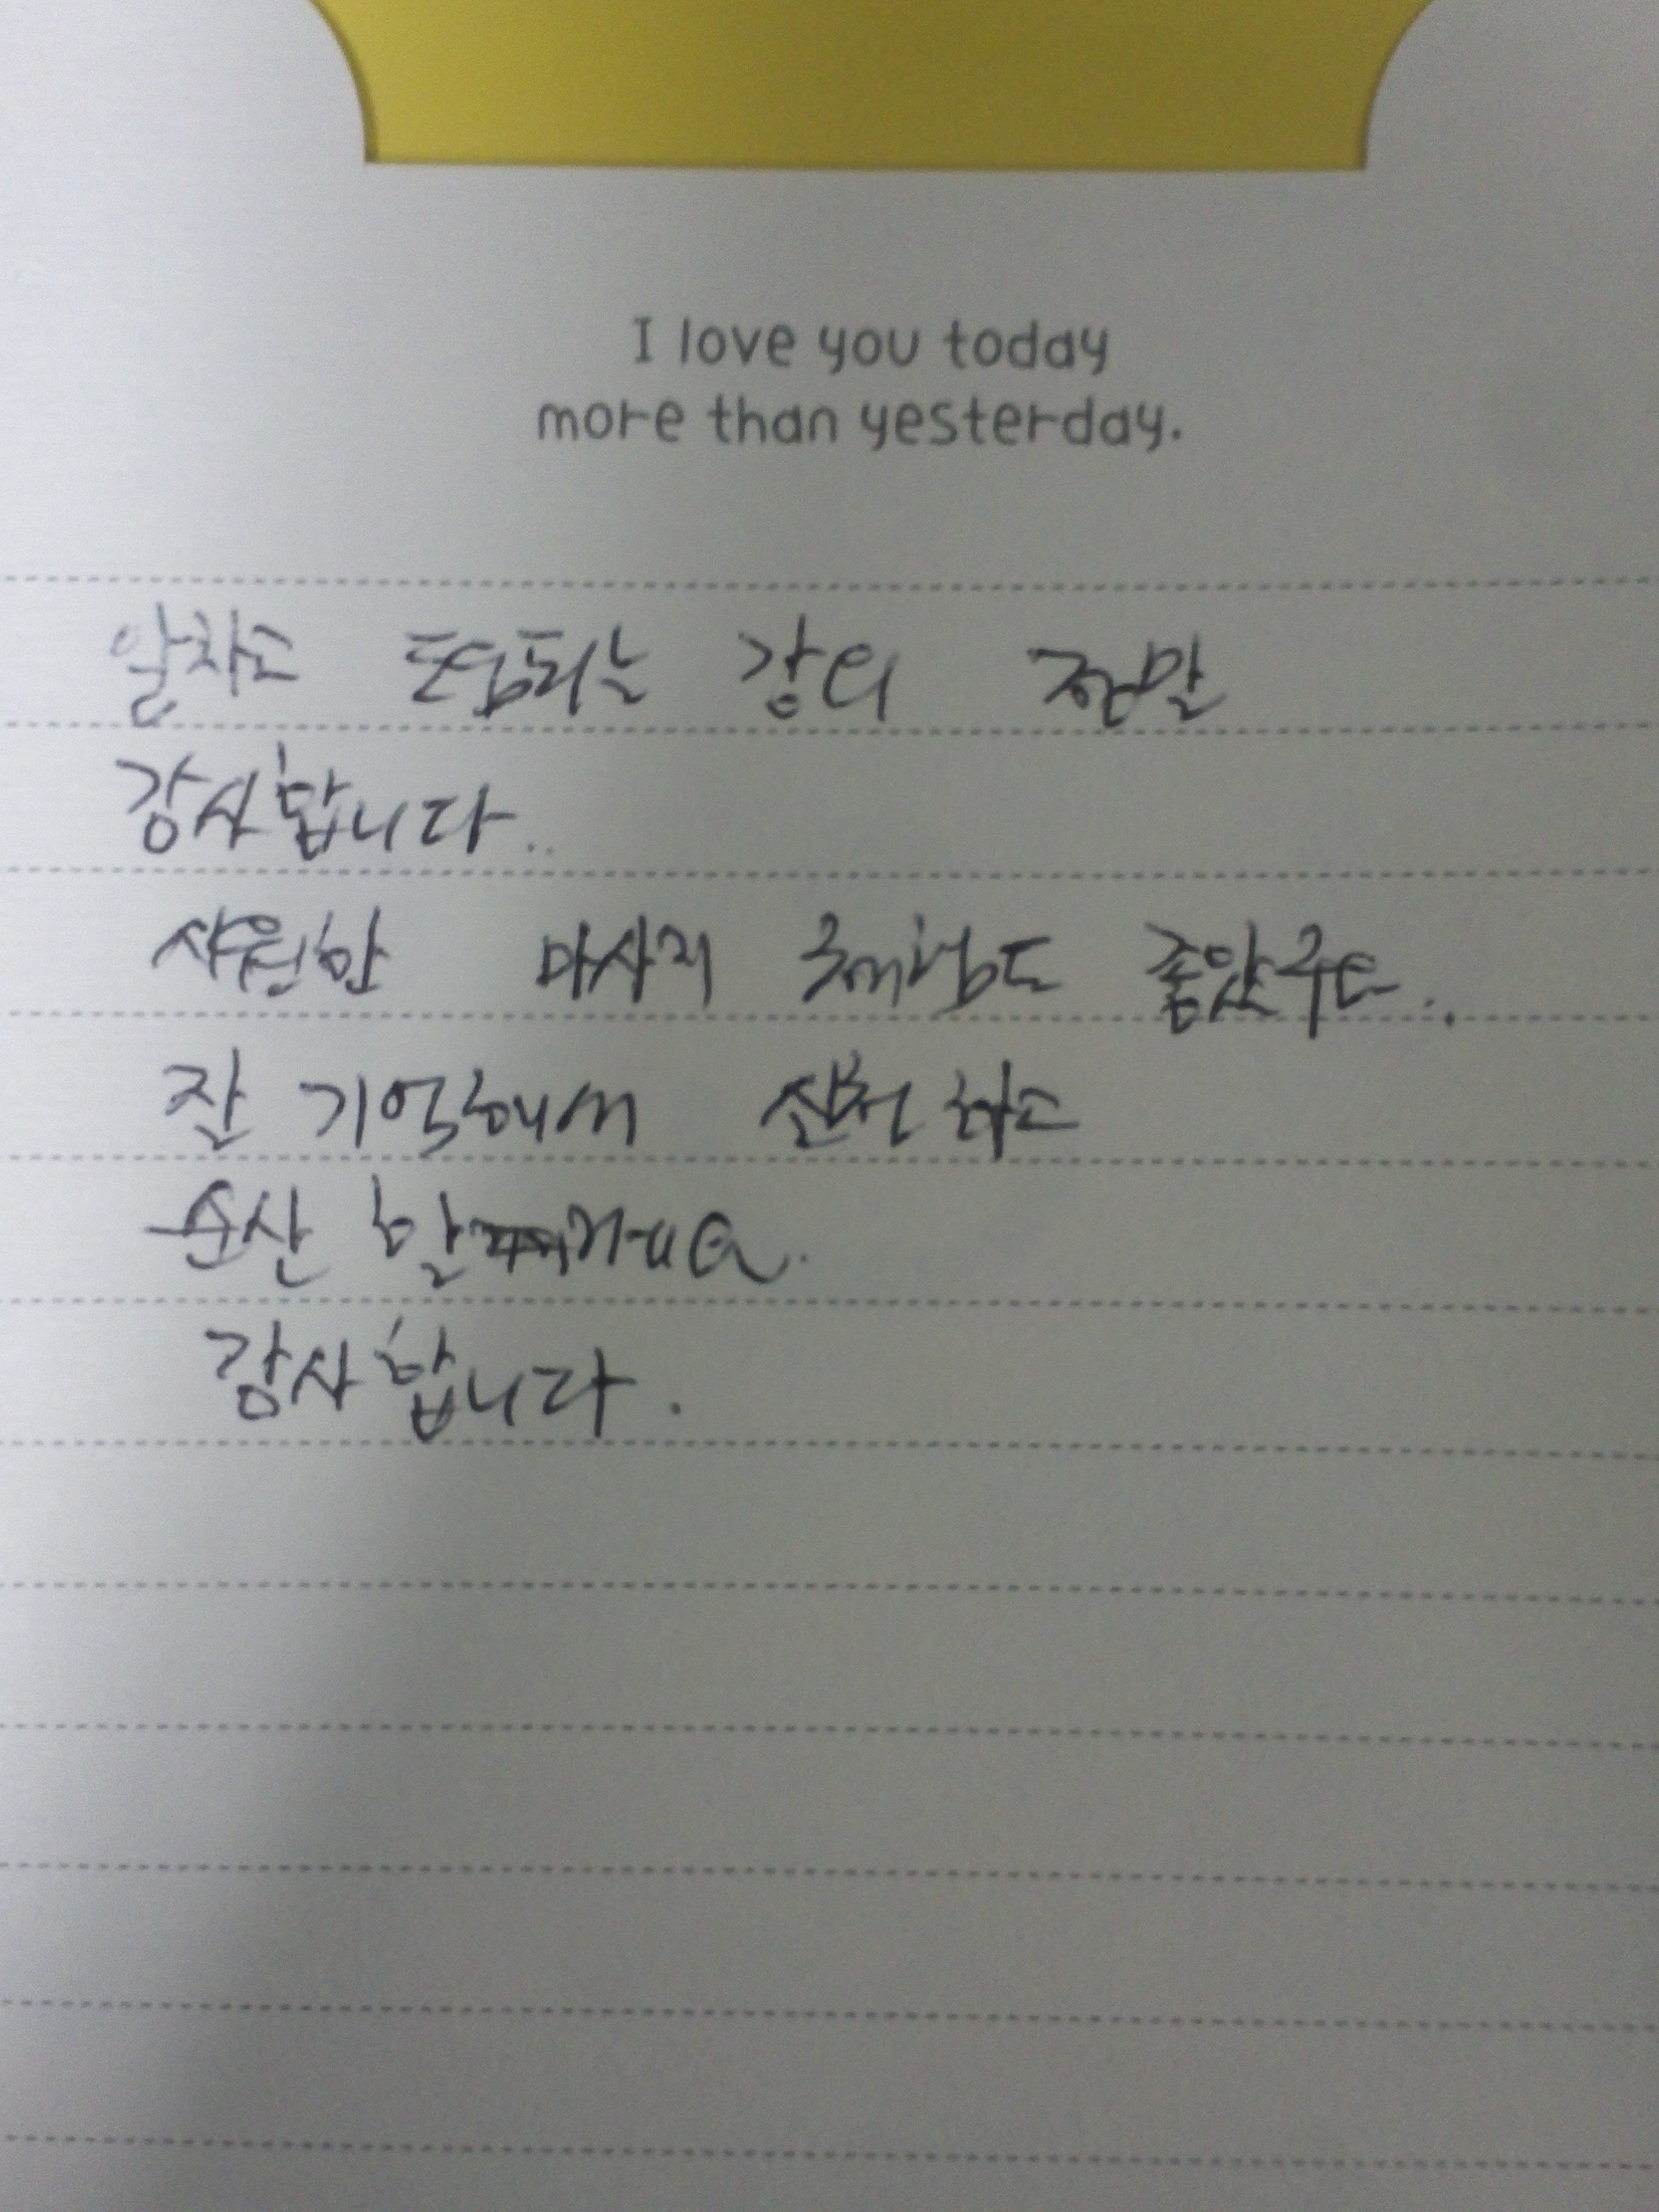 I love you today
more than yesterday.
알차고 도움되는 강의 정말
감사합니다..
시원한 마사지 체험도 좋았구요..
잘 기억해서 실천하고
순산 할게요.
감사합니다.